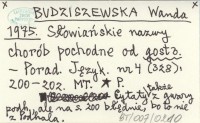 BUDZISZEWSKA Wanda
1975. Słowiańskie nazwy
chorób pochodne od gostь.
- Porad. Język. nr 4 (328):
200-202. MT. * P.
Cytaty także z gwary
podh., ale na s. 200 błędnie, bo to nie
z Podhala.
BT/007/0210